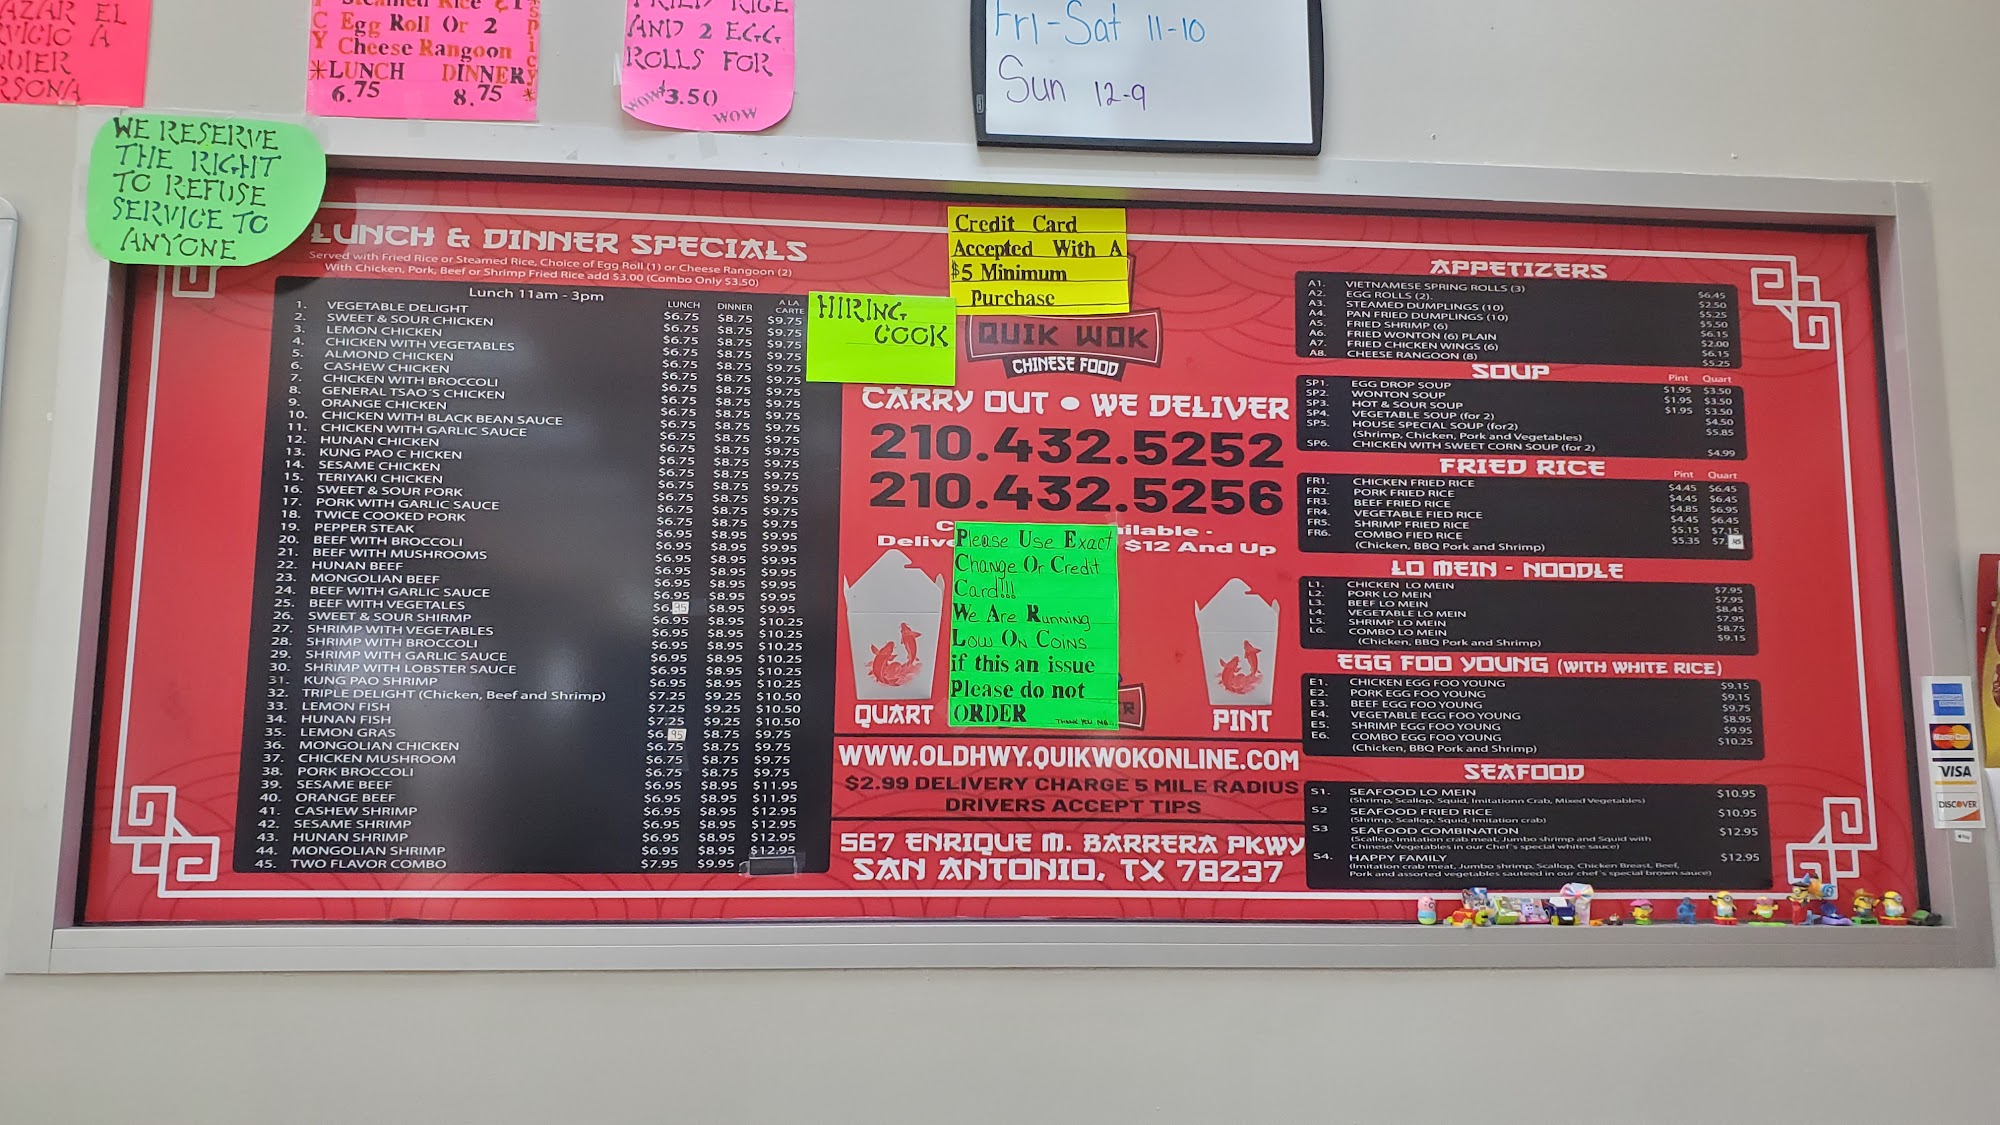 AZAR EL
RVICIO A
QUIER
RSONA
Steamed Rice
C Egg Roll Or 2
Y Cheese Rangoon
*LUNCH DINNER*
6.75 8.75
spicy
FRIED RICE
AND 2 EGG
ROLLS FOR
WOW $3.50
WOW
Fri-Sat 11-10
Sun 12-9
WE RESERVE
THE RIGHT
TO REFUSE
SERVICE TO
ANYONE
LUNCH & DINNER SPECIALS
Served with Fried Rice or Steamed Rice, Choice of Egg Roll (1) or Cheese Rangoon (2)
With Chicken, Pork, Beef or Shrimp Fried Rice add $3.00 (Combo Only $3.50)
Lunch 11am - 3pm
LUNCH DINNER A LA CARTE
1. VEGETABLE DELIGHT $6.75 $8.75 $9.75
2. SWEET & SOUR CHICKEN $6.75 $8.75 $9.75
3. LEMON CHICKEN $6.75 $8.75 $9.75
4. CHICKEN WITH VEGETABLES $6.75 $8.75 $9.75
5. ALMOND CHICKEN $6.75 $8.75 $9.75
6. CASHEW CHICKEN $6.75 $8.75 $9.75
7. CHICKEN WITH BROCCOLI $6.75 $8.75 $9.75
8. GENERAL TSAO'S CHICKEN $6.75 $8.75 $9.75
9. ORANGE CHICKEN $6.75 $8.75 $9.75
10. CHICKEN WITH BLACK BEAN SAUCE $6.75 $8.75 $9.75
11. CHICKEN WITH GARLIC SAUCE $6.75 $8.75 $9.75
12. HUNAN CHICKEN $6.75 $8.75 $9.75
13. KUNG PAO C HICKEN $6.75 $8.75 $9.75
14. SESAME CHICKEN $6.75 $8.75 $9.75
15. TERIYAKI CHICKEN $6.75 $8.75 $9.75
16. SWEET & SOUR PORK $6.75 $8.75 $9.75
17. PORK WITH GARLIC SAUCE $6.75 $8.75 $9.75
18. TWICE COOKED PORK $6.75 $8.75 $9.75
19. PEPPER STEAK $6.95 $8.95 $9.95
20. BEEF WITH BROCCOLI $6.95 $8.95 $9.95
21. BEEF WITH MUSHROOMS $6.95 $8.95 $9.95
22. HUNAN BEEF $6.95 $8.95 $9.95
23. MONGOLIAN BEEF $6.95 $8.95 $9.95
24. BEEF WITH GARLIC SAUCE $6.95 $8.95 $9.95
25. BEEF WITH VEGETALES $6.95 $8.95 $9.95
26. SWEET & SOUR SHIRMP $6.95 $8.95 $10.25
27. SHRIMP WITH VEGETABLES $6.95 $8.95 $10.25
28. SHRIMP WITH BROCCOLI $6.95 $8.95 $10.25
29. SHRIMP WITH GARLIC SAUCE $6.95 $8.95 $10.25
30. SHRIMP WITH LOBSTER SAUCE $6.95 $8.95 $10.25
31. KUNG PAO SHRIMP $6.95 $8.95 $10.25
32. TRIPLE DELIGHT (Chicken, Beef and Shrimp) $7.25 $9.25 $10.50
33. LEMON FISH $7.25 $9.25 $10.50
34. HUNAN FISH $7.25 $9.25 $10.50
35. LEMON GRAS $6.95 $8.75 $9.75
36. MONGOLIAN CHICKEN $6.75 $8.75 $9.75
37. CHICKEN MUSHROOM $6.75 $8.75 $9.75
38. PORK BROCCOLI $6.75 $8.75 $9.75
39. SESAME BEEF $6.95 $8.95 $11.95
40. ORANGE BEEF $6.95 $8.95 $11.95
41. CASHEW SHRIMP $6.95 $8.95 $12.95
42. SESAME SHRIMP $6.95 $8.95 $12.95
43. HUNAN SHRIMP $6.95 $8.95 $12.95
44. MONGOLIAN SHRIMP $6.95 $8.95 $12.95
45. TWO FLAVOR COMBO $7.95 $9.95
Credit Card
Accepted With A
$5 Minimum
Purchase
HIRING
COOK
QUIK WOK
CHINESE FOOD
CARRY OUT • WE DELIVER
210.432.5252
210.432.5256
$12 And Up
Please Use Exact
Change Or Credit
Card!!!
We Are Running
Low On Coins
if this an issue
Please do not
ORDER
QUART
PINT
WWW.OLDHWY.QUIKWOKONLINE.COM
$2.99 DELIVERY CHARGE 5 MILE RADIUS
DRIVERS ACCEPT TIPS
567 ENRIQUE M. BARRERA PKWY
SAN ANTONIO, TX 78237
APPETIZERS
A1. VIETNAMESE SPRING ROLLS (3) $6.45
A2. EGG ROLLS (2). $2.50
A3. STEAMED DUMPLINGS (10) $5.25
A4. PAN FRIED DUMPLINGS (10) $5.50
A5. FRIED SHRIMP (6) $6.15
A6. FRIED WONTON (6) PLAIN $2.00
A7. FRIED CHICKEN WINGS (6) $6.15
A8. CHEESE RANGOON (8) $5.25
SOUP
Pint Quart
SP1. EGG DROP SOUP $1.95 $3.50
SP2. WONTON SOUP $1.95 $3.50
SP3. HOT & SOUR SOUP $1.95 $3.50
SP4. VEGETABLE SOUP (for 2) $4.50
SP5. HOUSE SPECIAL SOUP (for2) $5.85
(Shrimp, Chicken, Pork and Vegetables)
SP6. CHICKEN WITH SWEET CORN SOUP (for 2) $4.99
FRIED RICE
Pint Quart
FR1. CHICKEN FRIED RICE $4.45 $6.45
FR2. PORK FRIED RICE $4.45 $6.45
FR3. BEEF FRIED RICE $4.85 $6.95
FR4. VEGETABLE FIED RICE $4.45 $6.45
FR5. SHRIMP FRIED RICE $5.15 $7.15
FR6. COMBO FIED RICE $5.35 $7.
(Chicken, BBQ Pork and Shrimp)
LO MEIN - NOODLE
L1. CHICKEN LO MEIN $7.95
L2. PORK LO MEIN $7.95
L3. BEEF LO MEIN $8.45
L4. VEGETABLE LO MEIN $7.95
L5. SHRIMP LO MEIN $8.75
L6. COMBO LO MEIN $9.15
(Chicken, BBQ Pork and Shrimp)
EGG FOO YOUNG (WITH WHITE RICE)
E1. CHICKEN EGG FOO YOUNG $9.15
E2. PORK EGG FOO YOUNG $9.15
E3. BEEF EGG FOO YOUNG $9.75
E4. VEGETABLE EGG FOO YOUNG $8.95
E5. SHRIMP EGG FOO YOUNG $9.95
E6. COMBO EGG FOO YOUNG $10.25
(Chicken, BBQ Pork and Shrimp)
SEAFOOD
S1. SEAFOOD LO MEIN $10.95
(Shrimp, Scallop, Squid, Imitationn Crab, Mixed Vegetables)
S2 SEAFOOD FRIED RICE $10.95
(Shrimp, Scallop, Squid, Imitation crab)
S3 SEAFOOD COMBINATION $12.95
(Scallop, Imitation crab meat, Jumbo shrimp and Squid with
Chinese Vegetables in our Chef's special white sauce)
S4. HAPPY FAMILY $12.95
(Imitation crab meat, Jumbo shrimp, Scallop, Chicken Breast, Beef,
Pork and assorted vegetables sauteed in our chef's special brown sauce)
VISA
DISCOVER